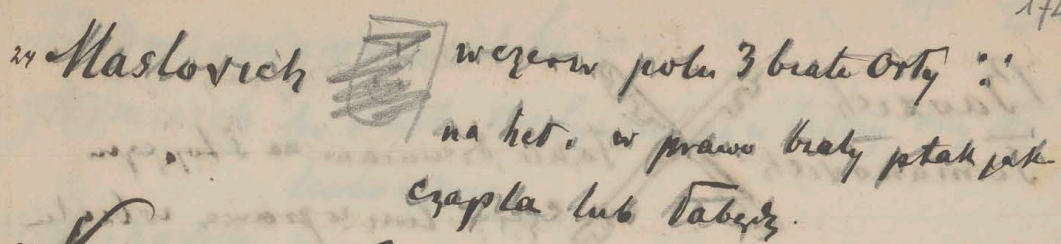 24 Maslovich w czerw polu 3 białe Orły
na heł. w prawo biały ptak jak
czapla lub łabędź.